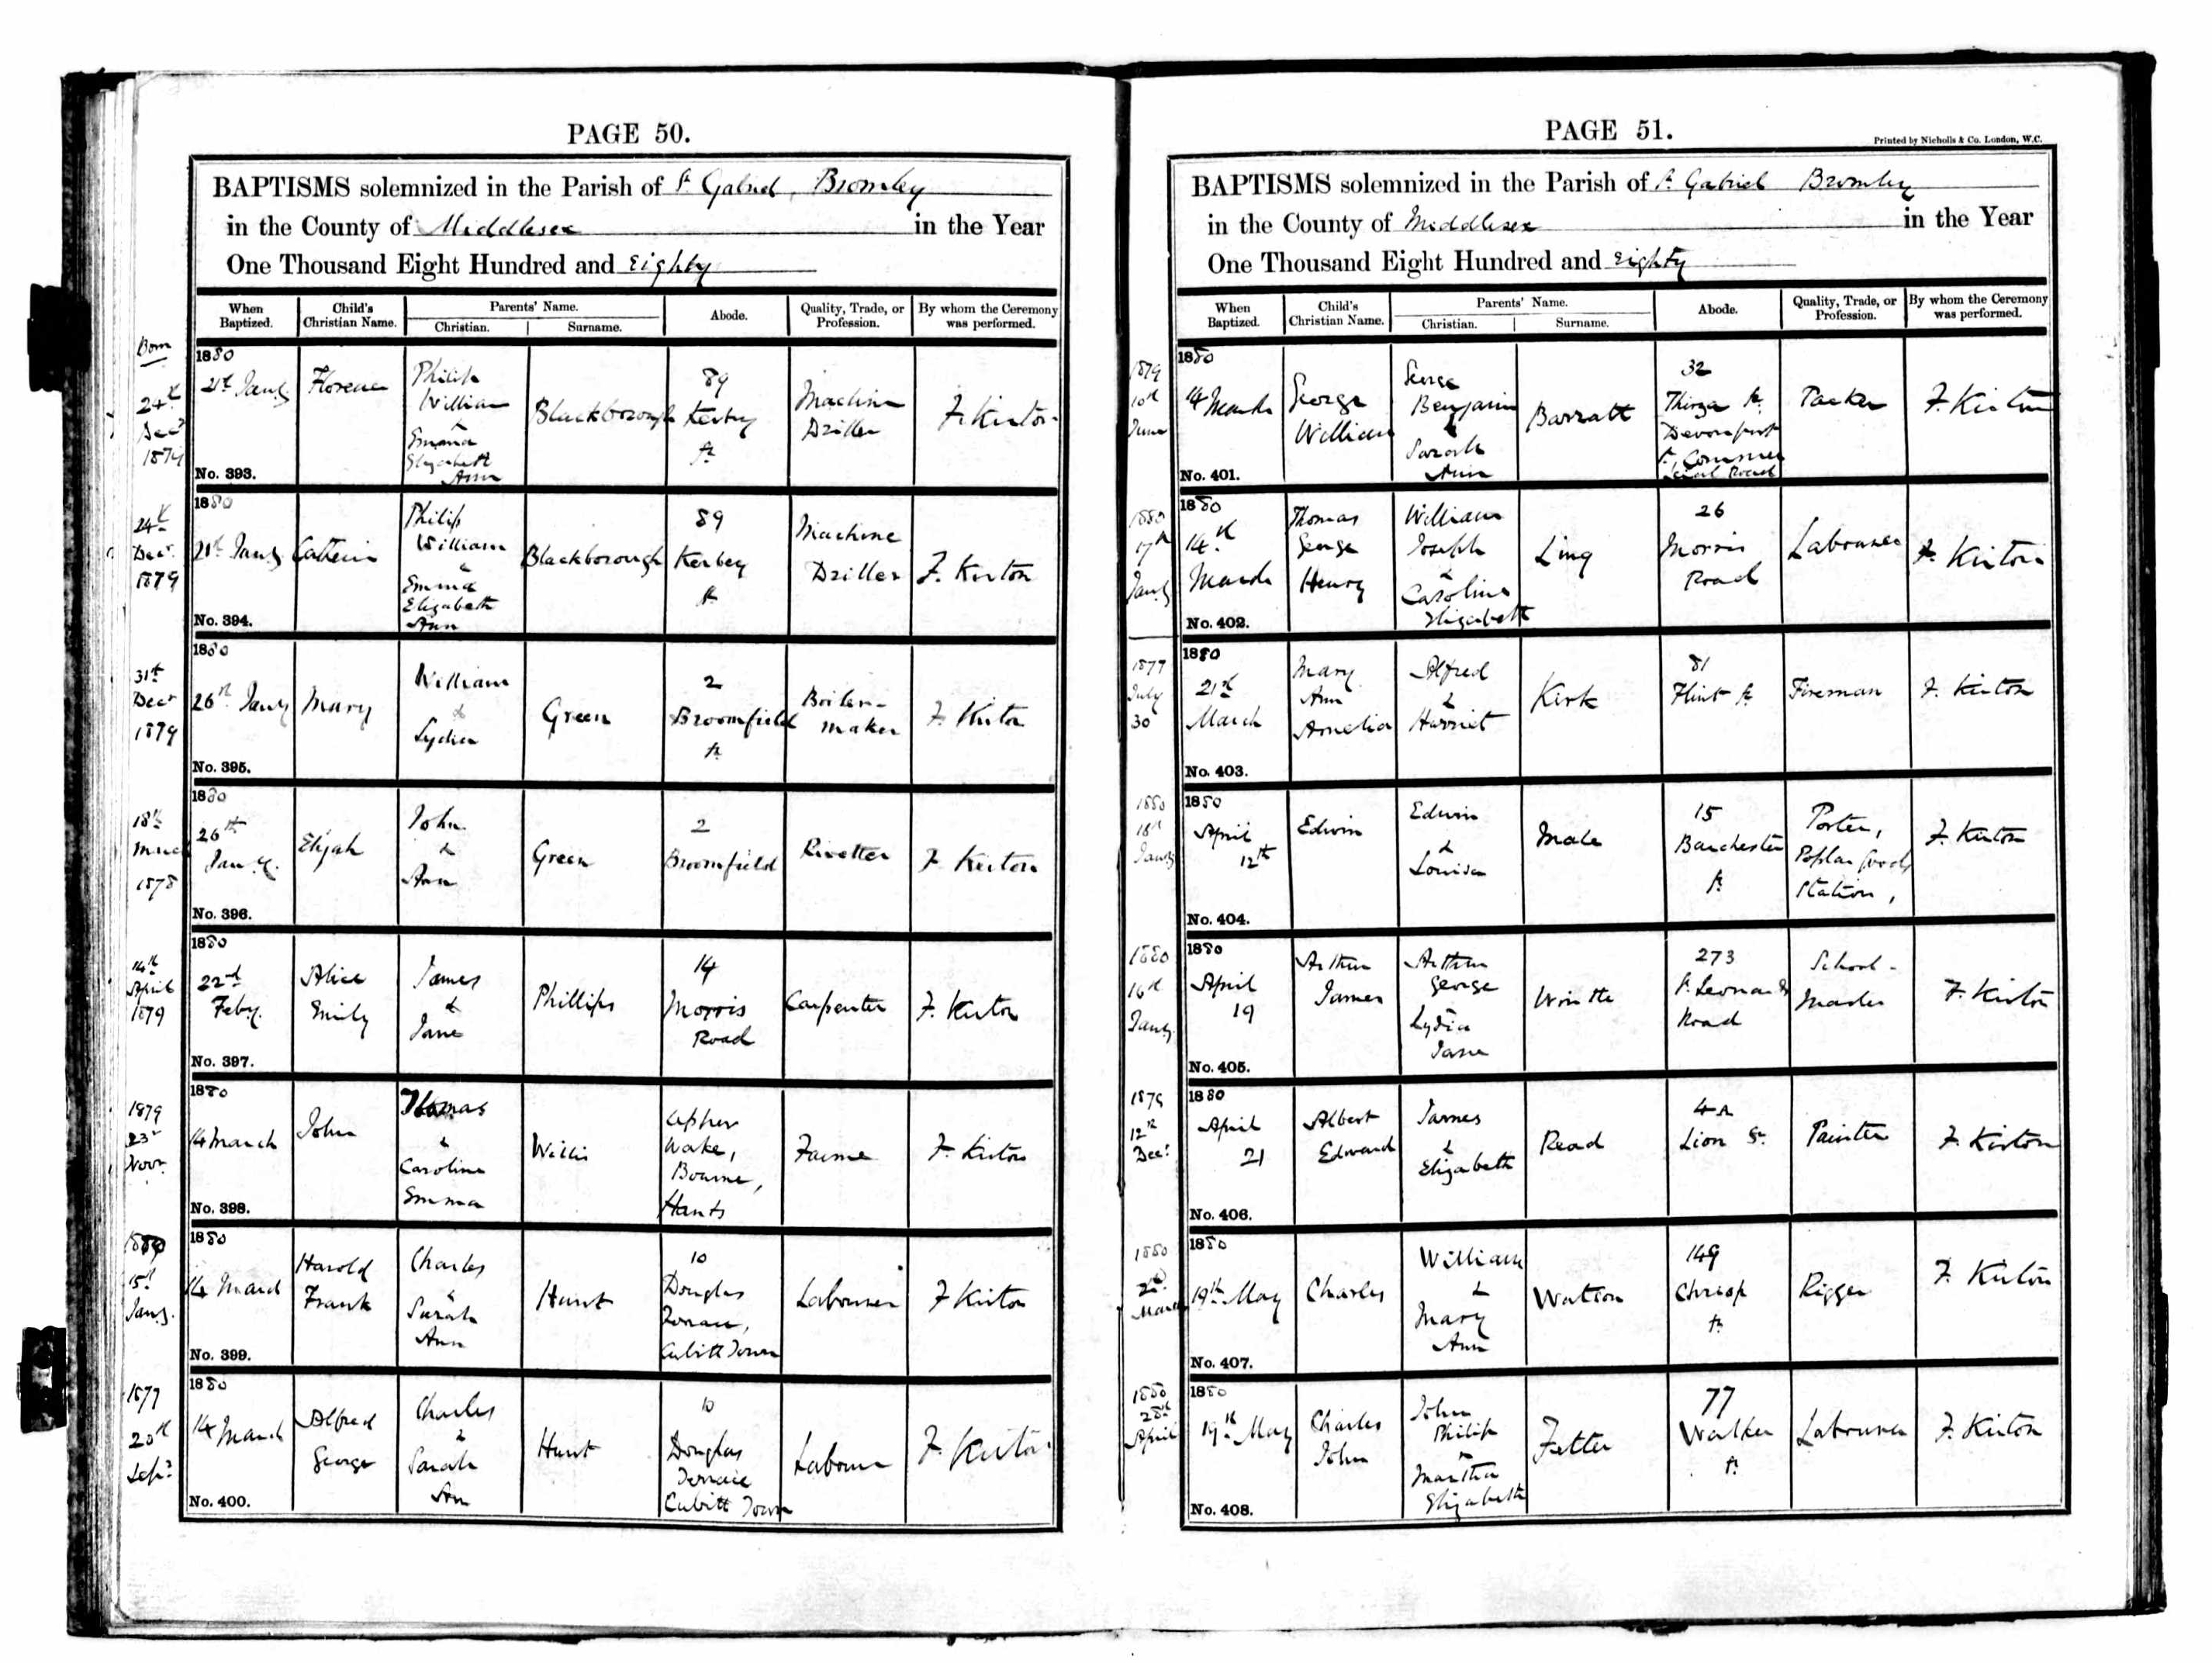 PAGE 50.
BAPTISMS solemnized in the Parish of St Gabriel, Bromley
in the County of Middlesex in the Year
One Thousand Eight Hundred and Eighty
When Baptized.
Child's Christian Name.
Parents' Name.
Christian.
Surname.
Abode.
Quality, Trade, or Profession.
By whom the Ceremony was performed.
Born
24th
Decr
1879
1880
21st Jany
No. 393.
Florence
Philip
William
&
Emma
Elizabeth
Ann
Blackborough
89
Kerbey
St
Machine
Driller
F. Kirton
24th
Decr
1879
1880
21st Jany
No. 394.
Catherin
Philip
William
&
Emma
Elizabeth
Ann
Blackborough
89
Kerbey
St
Machine
Driller
F. Kirton
31st
Decr
1879
1880
26th Jany
No. 395.
Mary
William
&
Lydia
Green
2
Broomfield
St
Boiler-
maker
F. Kirton
18th
March
1878
1880
26th
Jany.
No. 396.
Elijah
John
&
Ann
Green
2
Broomfield
Rivetter
F. Kirton
14th
April
1879
1880
22nd
Feby.
No. 397.
Alice
Emily
James
&
Jane
Phillips
14
Morris
Road
Carpenter
F. Kirton
1879
23r
Novr.
1880
14 March
No. 398.
John
Thomas
&
Caroline
Emma
Willis
Upper
Wake,
Bourne,
Hants
F. Kirton
1880
15th
Jany.
1880
14 March
No. 399.
Harold
Frank
Charles
&
Sarah
Ann
Hunt
10
Douglas
Terrace,
Cubitt Town
Labourer
F Kirton
1877
20th
Sepr
1880
14 March
No. 400.
Alfred
George
Charles
&
Sarah
Ann
Hunt
10
Douglas
Terrace
Cubitt Town
Labourer
F. Kirton
PAGE 51.
Printed by Nicholls & Co. London, W.C.
BAPTISMS solemnized in the Parish of St Gabriel Bromley
in the County of Middlesex in the Year
One Thousand Eight Hundred and Eighty
When Baptized.
Child's Christian Name.
Parents' Name.
Christian.
Surname.
Abode.
Quality, Trade, or Profession.
By whom the Ceremony was performed.
1879
10th
June
1880
14 March
No. 401.
George
William
George
Benjamin
&
Sarah
Ann
Barratt
32
Thirza St
Devonport
St Commer
cial Road
Packer
F. Kirton
1880
17th
Jany
1880
14th
March
No. 402.
Thomas
George
Henry
William
Joseph
&
Caroline
Elizabeth
Ling
26
Morris
Road
Labourer
F. Kirton
1877
July
30
1880
21st
March
No. 403.
Mary
Ann
Amelia
Alfred
&
Harriet
Kirk
81
Flint St
Fireman
F. Kirton
1880
18th
Jany
1880
April
12th
No. 404.
Edwin
Edwin
&
Louisa
Male
15
Barchester
St
Porter,
Poplar Goods
Station,
F. Kirton
1880
16th
Jany.
1880
April
19
No. 405.
Arthur
James
Arthur
George
Lydia
Jane
273
St Leonards
Road
School-
Master
F. Kirton
1879
12th
Decr
1880
April
21
No. 406.
Albert
Edward
James
&
Elizabeth
Read
4A
Lion St
Painter
F. Kirton
1880
2nd
March
1880
19th May
No. 407.
Charles
William
&
Mary
Ann
Watson
149
Chrisp
St
Rigger
F. Kirton
1880
28th
April
1880
19th May
No. 408.
Charles
John
John
Philip
&
Martha
Elizabeth
Fetter
77
Walker
St
Labourer
F. Kirton